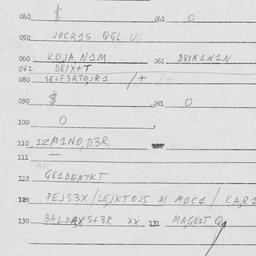 040 $ 041 0
050 JOCR1S QGL U
060 KOJA,N1M 061 D8IK1N1N
062 D8IX+T
080 SEJF3RTOJR1 /+
090 $ 091 0
100 0
110 1ZM1NO,D3R
111 —
112 G81DENTKT
120 PEJS3X/LEJKTOJS DI MOC1 / KA,R1
130 BALDAXS13R XX 131 MAG81T Q